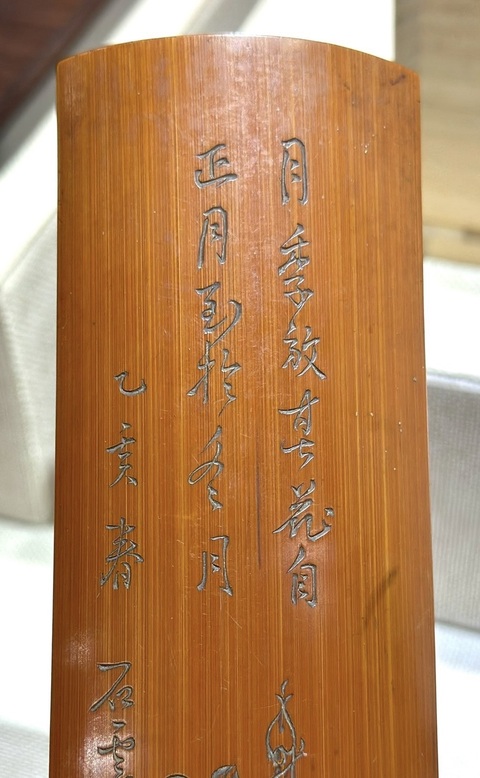 月季放其花自
正月至於冬月
乙亥春 石